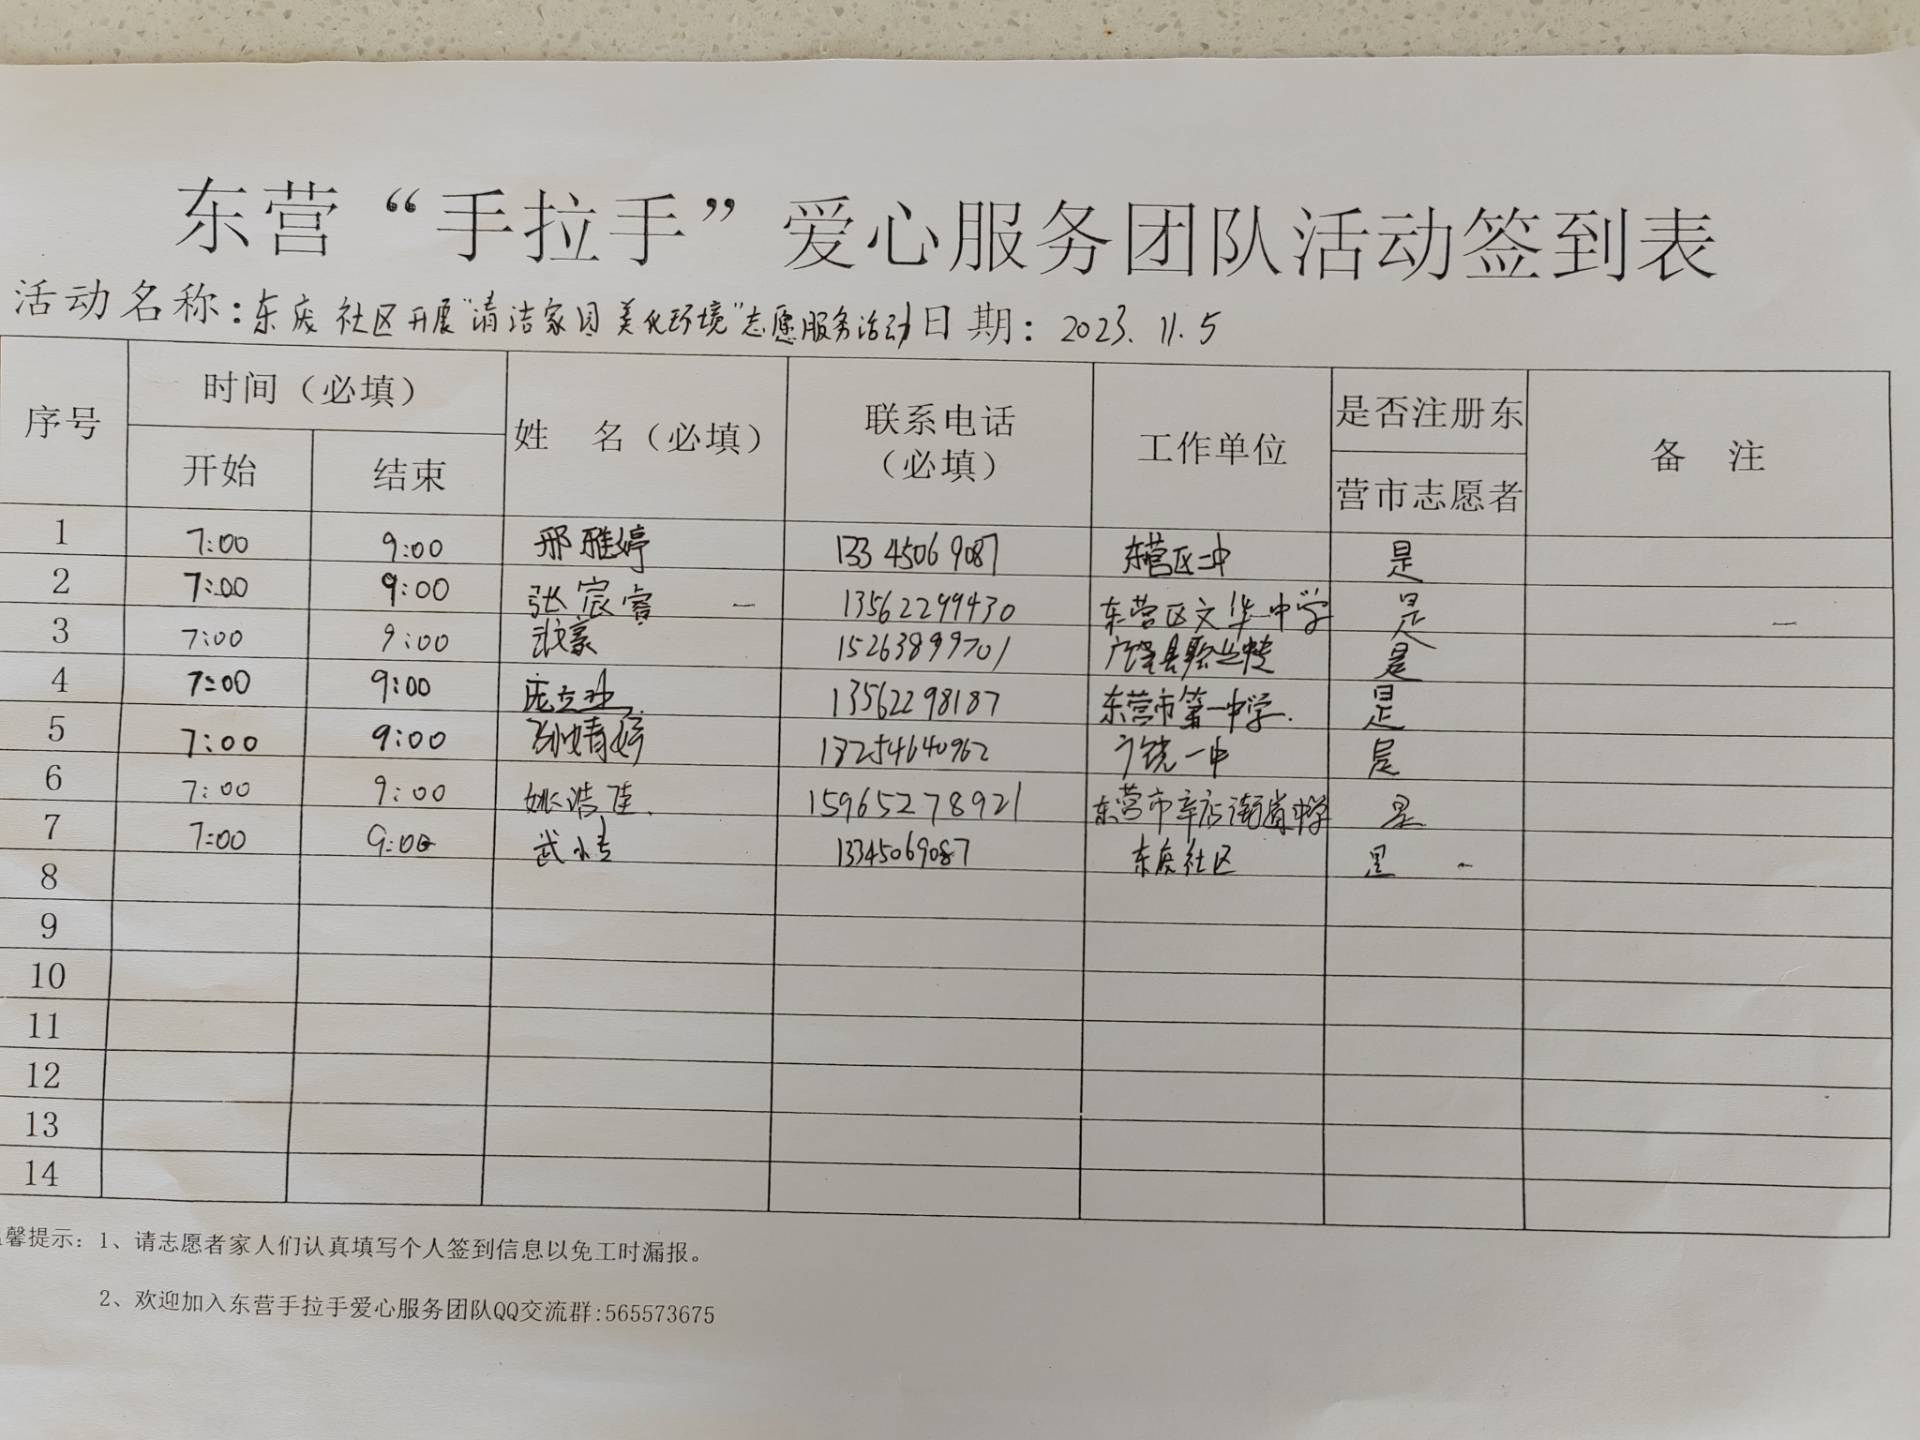 东营“手拉手”爱心服务团队活动签到表
活动名称:东庆社区开展"清洁家园 美化环境"志愿服务活动 日期: 2023. 11. 5
序号 时间(必填) 姓 名(必填) 联系电话 工作单位 是否注册东 备 注
开始 结束 (必填) 营市志愿者
1 7:00 9:00 邢雅婷 13345069087 东营区二中 是
2 7:00 9:00 张宸睿 13562299430 东营区文华中学 是
3 7:00 9:00 15263899701 是
4 7:00 9:00 13562298187 东营市第一中学. 是
5 7:00 9:00 孙婧婷 广饶一中 是
6 7:00 9:00 姚浩 15965278921 东营市辛店街道中学 是
7 7:00 9:00 武 13345069087 东庆社区 是
8
9
10
11
12
13
14
馨提示: 1、请志愿者家人们认真填写个人签到信息以免工时漏报。
2、欢迎加入东营手拉手爱心服务团队QQ交流群:565573675